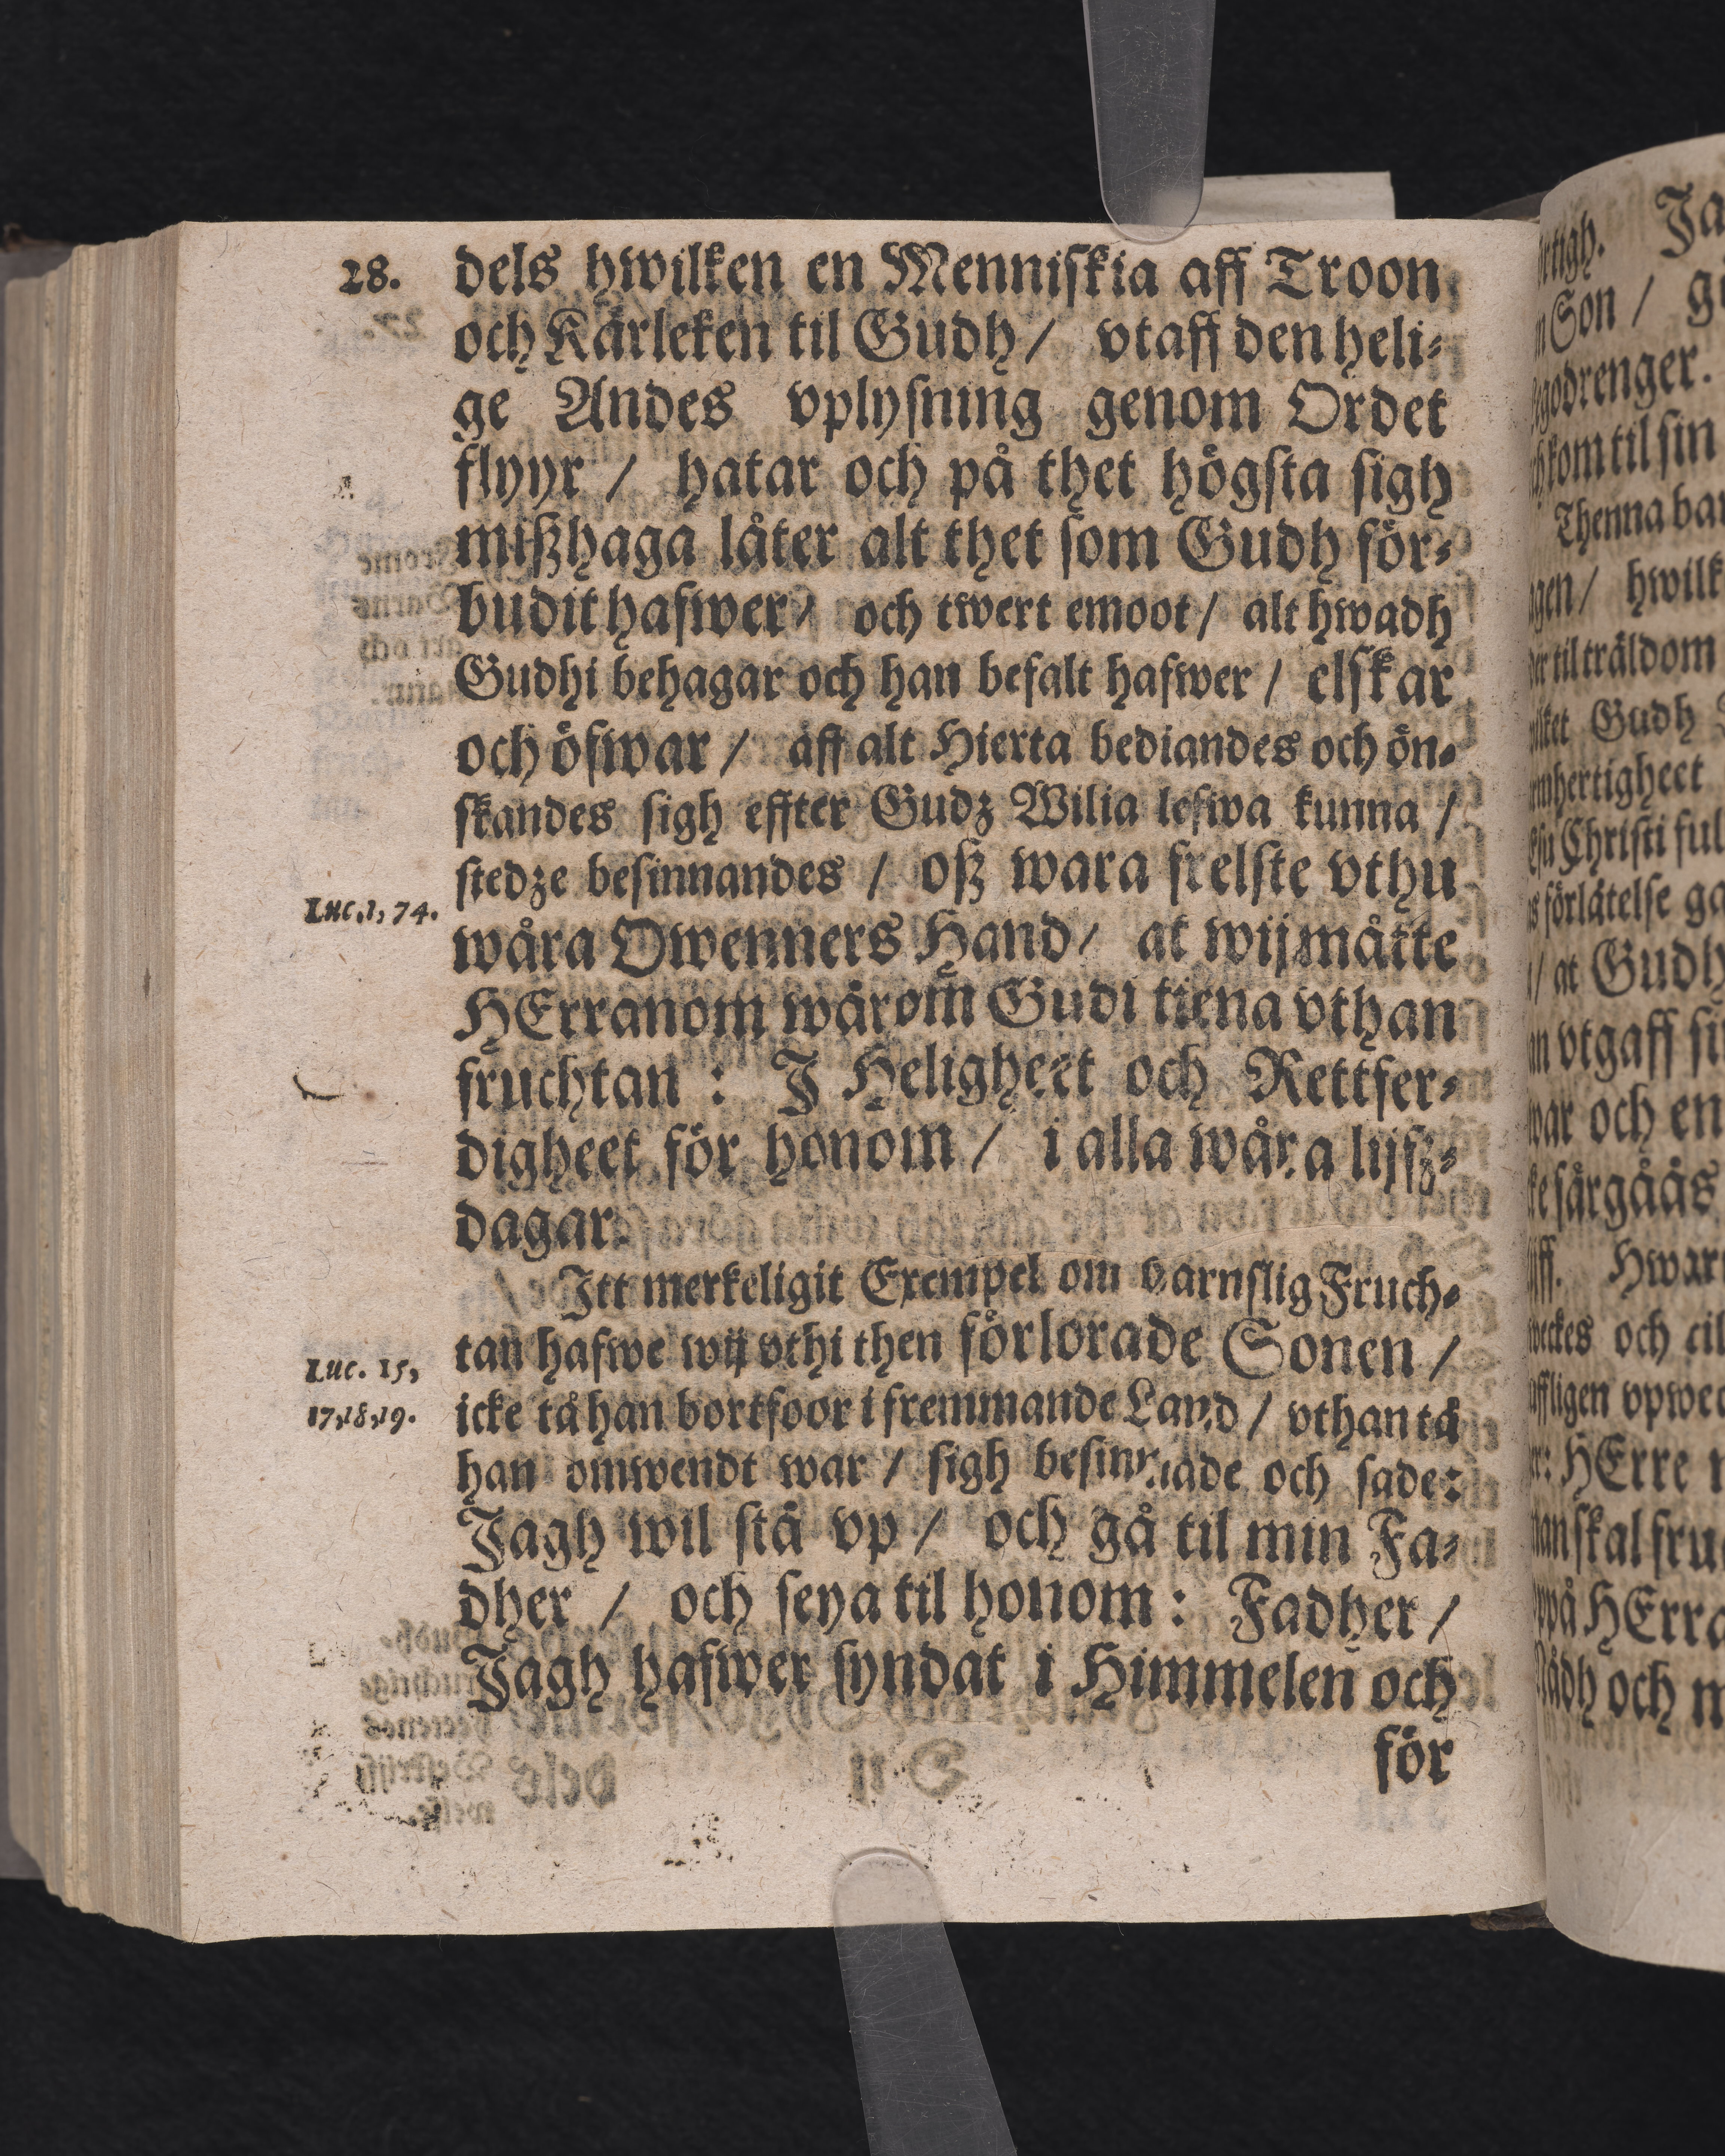 28.
dels hwilken en Menniſkia aff Troon
och Kärleken til Gudh / vtaff den heli-
ge Andes vplyſning genom Ordet
flyyr / hatar och på thet högſta ſigh
mißhaga låter alt thet ſom Gudh för-
budit hafwer / och twert emoot / alt hwadh
Gudhi behagar och han befalt hafwer / elſkar
och öfwar / aff alt Hierta bediandes och ön-
ſkandes ſigh effter Gudz Wilia lefwa kunna /
ſtedze beſinnandes / oß wara frelſte vthu
Luc. 1, 74.
wåra Owenners Hand / at wij måtte
HErranom wårom Gudi tiena vthan
fruchtan : J Heligheet och Rettfer-
digheet för honom / i alla wåra lijfz-
dagar.
Itt merkeligit Exempel om barnſlig Fruch-
tan hafwe wij vthi then förlorade Sonen /
Luc. 15,
icke tå han bortfoor i fremmande Land / vthan tå
17, 18, 19.
han omwendt war / ſigh beſinnade och ſade:
Jagh wil ſtå vp / och gå til min Fa-
dher / och ſeya til honom : Fadher /
Jagh hafwer ſyndat i Himmelen och
för
Ja
Son / 
godrenger.
kom til ſin
Thenna
hwilk
til träldom
Gudh
Chriſti
förlåtelſe
/ at Gudh
vtgaff
och en
Hwar
och
vpwec
HErre
ſkal
HErra
och